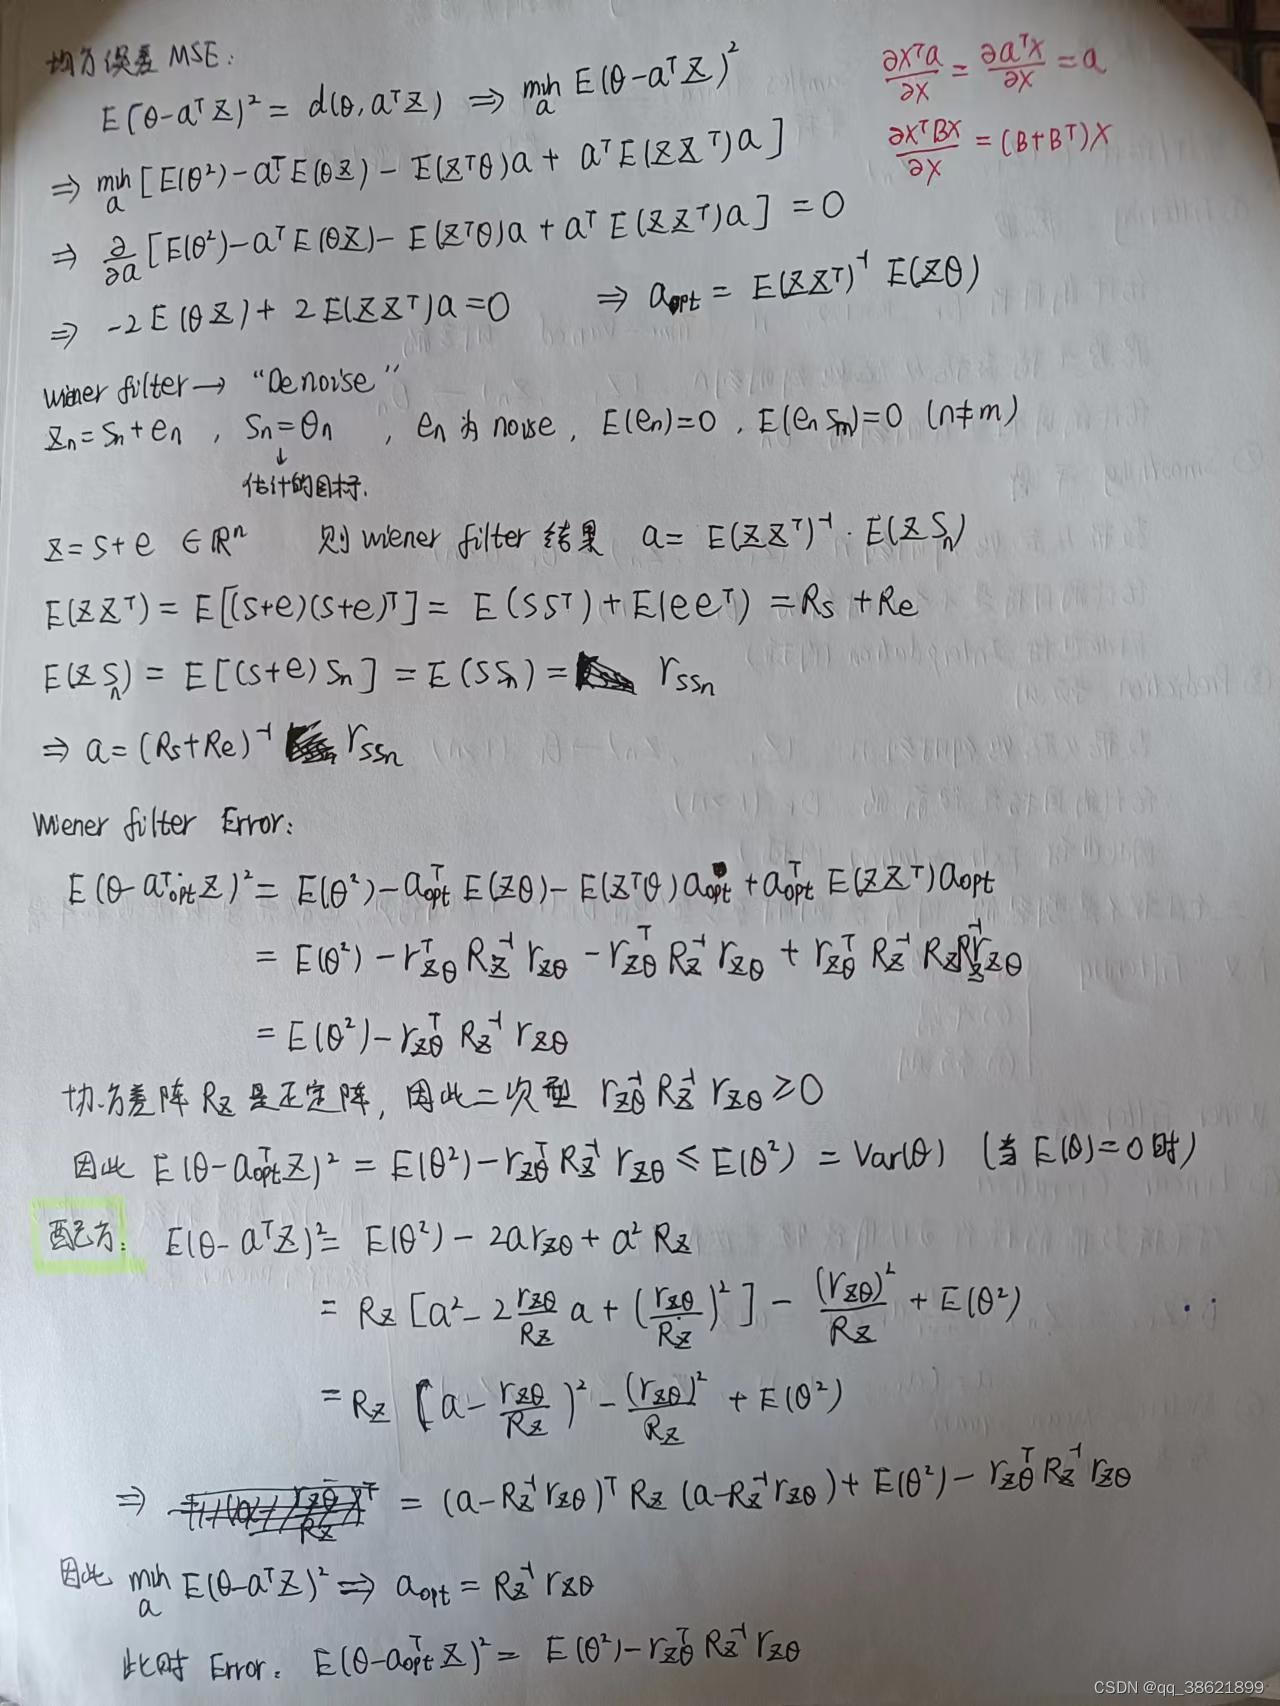 均方误差 MSE:
E(θ-aᵀZ)² = d(θ, aᵀZ) ⇒ min_a E(θ-aᵀZ)²
∂Xᵀa/∂X = ∂aᵀX/∂X = a
∂XᵀBX/∂X = (B+Bᵀ)X
⇒ min_a [E(θ²) - aᵀE(θZ) - E(Zᵀθ)a + aᵀE(ZZᵀ)a]
⇒ ∂/∂a [E(θ²) - aᵀE(θZ) - E(Zᵀθ)a + aᵀE(ZZᵀ)a] = 0
⇒ -2E(θZ) + 2E(ZZᵀ)a = 0 ⇒ a_opt = E(ZZᵀ)⁻¹ E(Zθ)
wiener filter → "Denoise"
Zn = Sn + en , Sn = θn , en 为 noise, E(en)=0, E(en Sm)=0 (n≠m)
↓
估计的目标.
Z = S+e ∈ ℝⁿ 则 wiener filter 结果 a = E(ZZᵀ)⁻¹ · E(ZSn)
E(ZZᵀ) = E[(S+e)(S+e)ᵀ] = E(SSᵀ) + E(eeᵀ) = Rs + Re
E(ZSn) = E[(S+e)Sn] = E(SSn) = r_SSn
⇒ a = (Rs+Re)⁻¹ r_SSn
Wiener filter Error:
E(θ-aᵀ_opt Z)² = E(θ²) - aᵀ_opt E(Zθ) - E(Zᵀθ)a_opt + aᵀ_opt E(ZZᵀ)a_opt
= E(θ²) - rᵀ_Zθ R_Z⁻¹ r_Zθ - rᵀ_Zθ R_Z⁻¹ r_Zθ + rᵀ_Zθ R_Z⁻¹ R_Z R_Z⁻¹ r_Zθ
= E(θ²) - rᵀ_Zθ R_Z⁻¹ r_Zθ
协方差阵 R_Z 是正定阵, 因此二次型 r⁻¹_Zθ R_Z⁻¹ r_Zθ ≥ 0
因此 E(θ-aᵀ_opt Z)² = E(θ²) - rᵀ_Zθ R_Z⁻¹ r_Zθ ≤ E(θ²) = Var(θ) (当 E(θ)=0 时)
配方: E(θ-aᵀZ)² = E(θ²) - 2a r_Zθ + a² R_Z
= R_Z [a² - 2 r_Zθ/R_Z a + (r_Zθ/R_Z)²] - (r_Zθ)²/R_Z + E(θ²)
= R_Z [a - r_Zθ/R_Z)² - (r_Zθ)²/R_Z + E(θ²)
⇒ = (a - R_Z⁻¹ r_Zθ)ᵀ R_Z (a - R_Z⁻¹ r_Zθ) + E(θ²) - rᵀ_Zθ R_Z⁻¹ r_Zθ
因此 min_a E(θ-aᵀZ)² ⇒ a_opt = R_Z⁻¹ r_Zθ
此时 Error: E(θ-aᵀ_opt Z)² = E(θ²) - rᵀ_Zθ R_Z⁻¹ r_Zθ
CSDN @qq_38621899